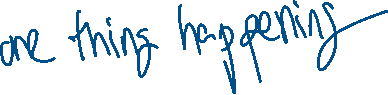 one thing happening